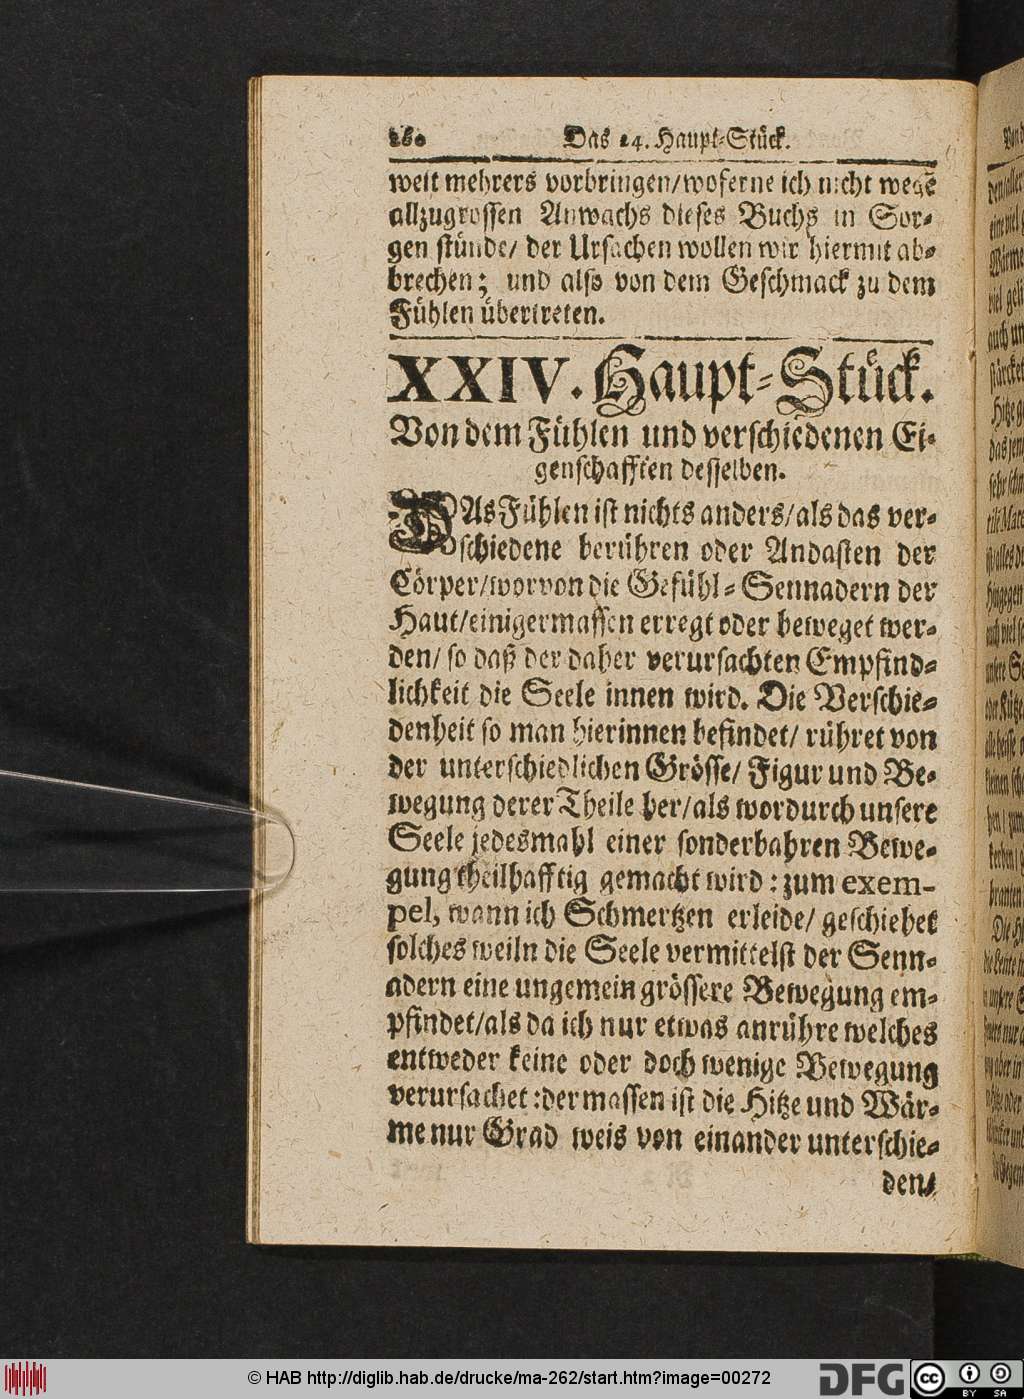 260 Das 24. Haupt-Stück.
weit mehrers vorbringen/woferne ich nicht wegē
allzugrossen Anwachs dieses Buchs in Sor-
gen stünde/ der Ursachen wollen wir hiermit ab-
brechen; und also von dem Geschmack zu dem
Fühlen übertreten.
XXIV. Haupt-Stück.
Von dem Fühlen und verschiedenen Ei-
genschafften desselben.
DAs Fühlen ist nichts anders/als das ver-
schiedene berühren oder Andasten der
Cörper/worvon die Gefühl-Sennadern der
Haut/einigermassen erregt oder beweget wer-
den/ so daß der daher verursachten Empfind-
lichkeit die Seele innen wird. Die Verschie-
denheit so man hierinnen befindet/ rühret von
der unterschiedlichen Grösse/ Figur und Be-
wegung derer Theile her/als wordurch unsere
Seele jedesmahl einer sonderbahren Bewe-
gung theilhafftig gemacht wird: zum exem-
pel, wann ich Schmertzen erleide/ geschiehet
solches weiln die Seele vermittelst der Senn-
adern eine ungemein grössere Bewegung em-
pfindet/als da ich nur etwas anrühre welches
entweder keine oder doch wenige Bewegung
verursachet: dermassen ist die Hitze und Wär-
me nur Grad weis von einander unterschie-
den/
© HAB http://diglib.hab.de/drucke/ma-262/start.htm?image=00272
DFG
cc BY SA